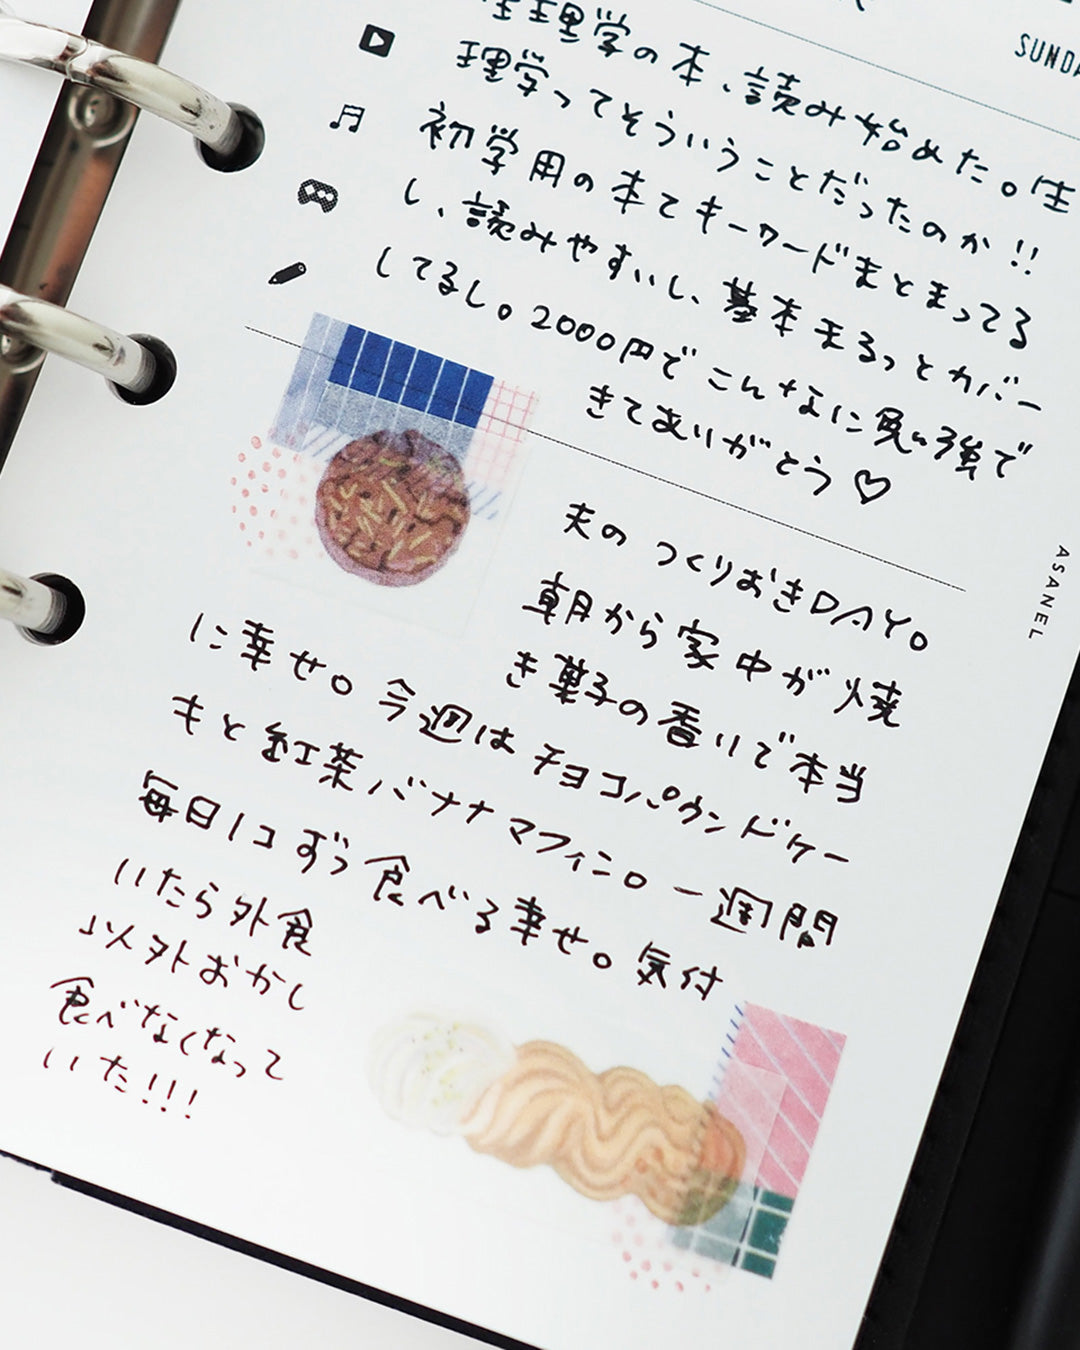 SUNDA
生理学の本、読み始めた。生
理学ってそういうことだったのか!!
初学用の本でキーワードまとまってる
し、読みやすいし、基本まるっとカバー
してるし。2000円でこんなに勉強で
きてありがとう♡
ASANEL
夫のつくりおきDAY。
朝から家中が焼
き菓子の香りで本当
に幸せ。今週はチョコパウンドケー
キと紅茶バナナマフィン。一週間
毎日1コずつ食べる幸せ。気付
いたら外食
以外おかし
食べなくなって
いた!!!